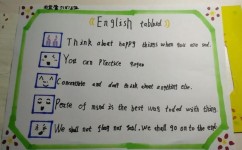 English tabloid
Think about happy things when you are sad.
You can practice
Concentrate and don't think about anything else.
Peace of mind is the best way to deal with things.
We shall not our goal. We shall go on to the end